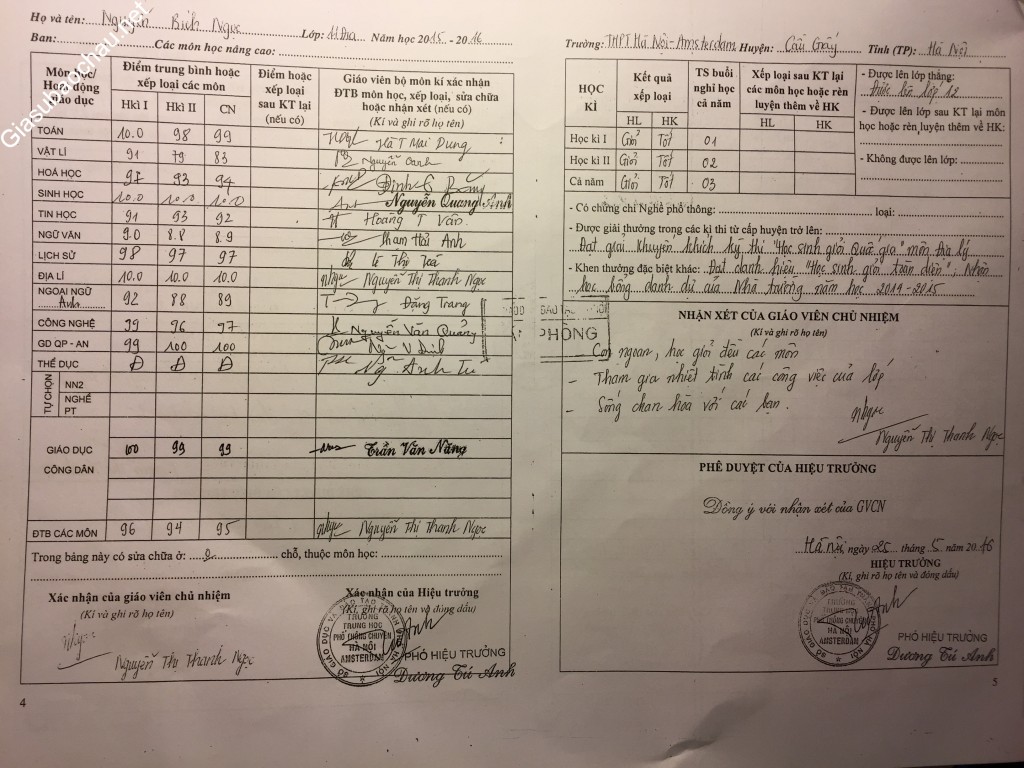 Giasubaochau.net
Họ và tên: Nguyễn Bích Ngọc Lớp: 11 Địa Năm học 2015 - 2016
Ban: Các môn học nâng cao:
Môn học/ Hoạt động giáo dục
Điểm trung bình hoặc xếp loại các môn
Điểm hoặc xếp loại sau KT lại (nếu có)
Giáo viên bộ môn kí xác nhận ĐTB môn học, xếp loại, sửa chữa hoặc nhận xét (nếu có)
(Kí và ghi rõ họ tên)
HkI I HkI II CN
TOÁN 10.0 98 99 Hà T Mai Dung
VẬT LÍ 91 79 83 Nguyễn Oanh
HOÁ HỌC 97 93 94
SINH HỌC 10.0 10.0 10.0 Nguyễn Quang Anh
TIN HỌC 91 93 92 Hoàng T Vân
NGỮ VĂN 9.0 8.8 8.9 Phạm Hải Anh
LỊCH SỬ 98 97 97
ĐỊA LÍ 10.0 10.0 10.0 Nguyễn Thị Thanh Ngọc
NGOẠI NGỮ Anh 92 88 89 Đặng Trang
CÔNG NGHỆ 99 96 97 Nguyễn Văn Quảng
GD QP - AN 99 100 100
THỂ DỤC Đ Đ Đ Ng Anh Tú
TỰ CHỌN
NN2
NGHỀ PT
GIÁO DỤC CÔNG DÂN 100 99 99 Trần Văn Năng
ĐTB CÁC MÔN 96 94 95 Nguyễn Thị Thanh Ngọc
Trong bảng này có sửa chữa ở: chỗ, thuộc môn học:
Xác nhận của giáo viên chủ nhiệm
(Kí và ghi rõ họ tên)
Nguyễn Thị Thanh Ngọc
Xác nhận của Hiệu trưởng
(Kí, ghi rõ họ tên và đóng dấu)
TRƯỜNG
TRUNG HỌC
PHỔ THÔNG CHUYÊN
HÀ NỘI
AMSTERDAM
PHÓ HIỆU TRƯỞNG
Dương Tú Anh
4
Trường: THPT Hà Nội - Amsterdam Huyện: Cầu Giấy Tỉnh (TP): Hà Nội
HỌC KÌ
Kết quả xếp loại
TS buổi nghỉ học cả năm
Xếp loại sau KT lại các môn học hoặc rèn luyện thêm về HK
HL HK HL HK
Học kì I Giỏi Tốt 01
Học kì II Giỏi Tốt 02
Cả năm Giỏi Tốt 03
- Được lên lớp thẳng:
Được lên lớp 12
- Được lên lớp sau KT lại môn học hoặc rèn luyện thêm về HK:
- Không được lên lớp:
- Có chứng chỉ Nghề phổ thông: loại:
- Được giải thưởng trong các kì thi từ cấp huyện trở lên:
Đạt giải Khuyến khích kỳ thi "Học sinh giỏi Quốc gia" môn Địa lý
- Khen thưởng đặc biệt khác: Đạt danh hiệu "Học sinh giỏi toàn diện", Nhận
học bổng danh dự của Nhà trường năm học 2014-2015
PHÒNG
NHẬN XÉT CỦA GIÁO VIÊN CHỦ NHIỆM
(Kí và ghi rõ họ tên)
Con ngoan, học giỏi đều các môn
- Tham gia nhiệt tình các công việc của lớp
- Sống chan hòa với các bạn.
Nguyễn Thị Thanh Ngọc
PHÊ DUYỆT CỦA HIỆU TRƯỞNG
Đồng ý với nhận xét của GVCN
Hà Nội, ngày 25 tháng 5 năm 2016
HIỆU TRƯỞNG
(Kí, ghi rõ họ tên và đóng dấu)
TRƯỜNG
TRUNG HỌC
PHỔ THÔNG CHUYÊN
HÀ NỘI
AMSTERDAM
PHÓ HIỆU TRƯỞNG
Dương Tú Anh
5